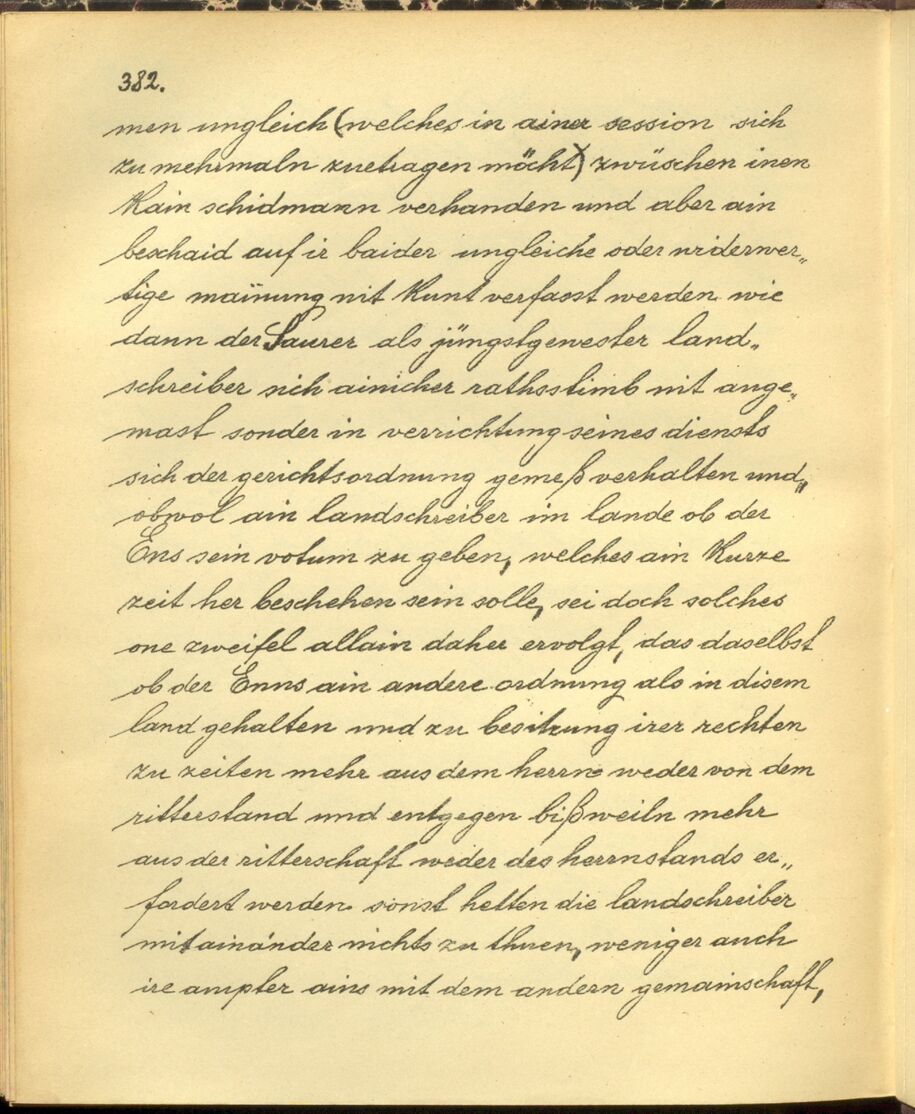 382.
men ungleich (welches in ainer session sich
zu mehrmaln zuetragen möcht) zwüschen inen
kain schidmann verhanden und aber ain
beschaid auf ir baider ungleiche oder widerwer„
tige mäinung nit kunt verfasst werden wie
dann der Saurer als jüngstgewester land„
schreiber sich ainicher rathsstimb nit ange„
mast sonder in verrichtung seines diensts
sich der gerichtsordnung gemeß verhalten und„
obwol ain landschreiber im lande ob der
Ens sein votum zu geben, welches ain kurze
zeit her beschehen sein solle, sei doch solches
one zweifel allain daher ervolgt, das daselbst
ob der Enns ain andere ordnung als in disem
land gehalten und zu besitzung irer rechten
zu zeiten mehr aus dem herrn weder von dem
ritterstand und entgegen bißweiln mehr
aus der ritterschaft weder des herrnstands er„
fordert werden sonst hetten die landschreiber
mitainander nichts zu thuen, weniger auch
ire ampter ains mit dem andern gemainschaft,